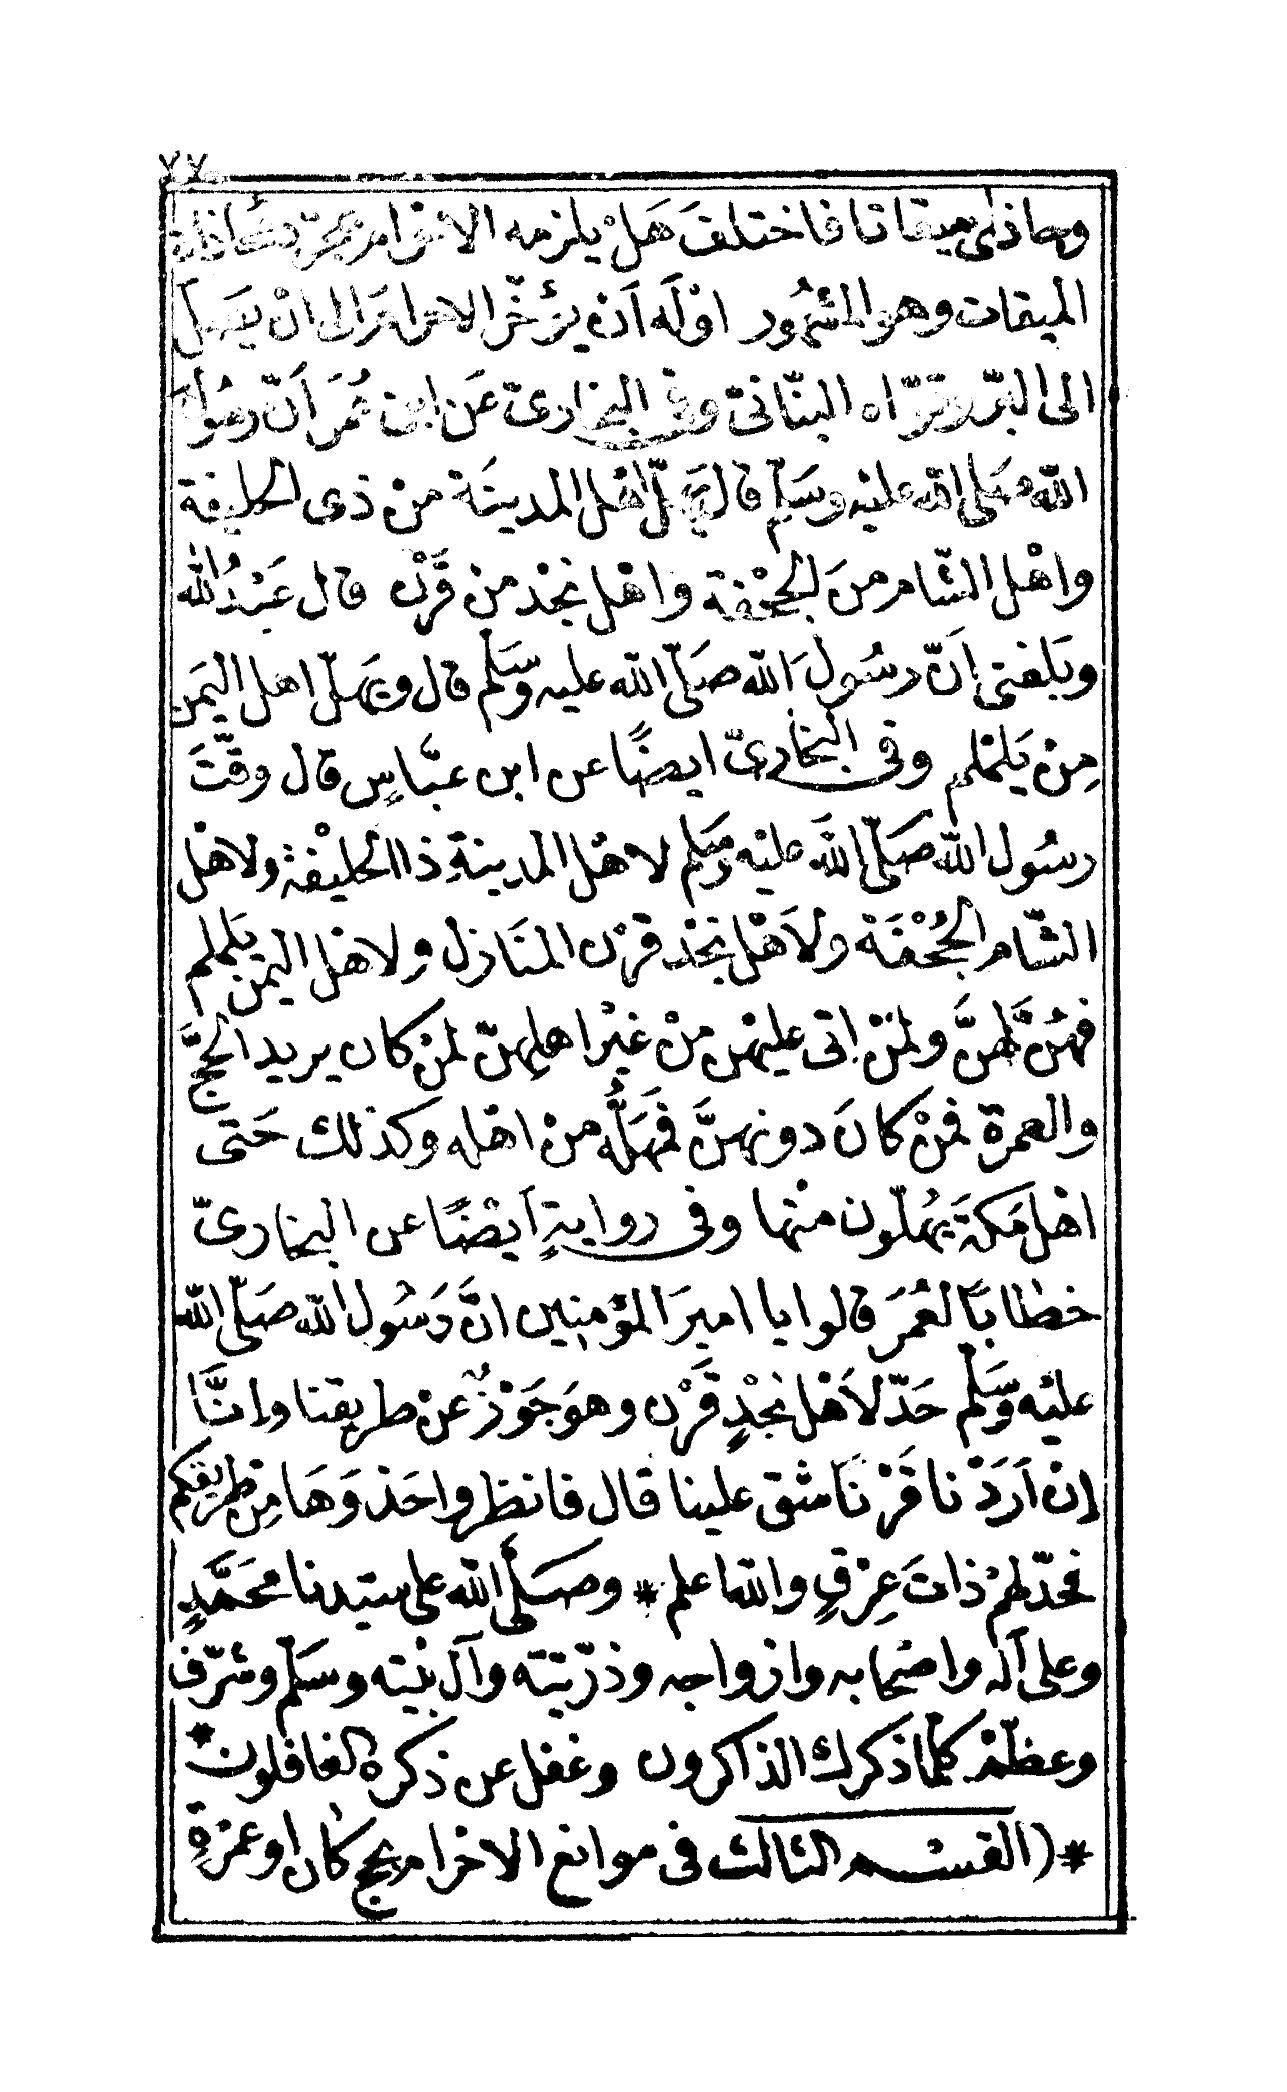 ٧٧
وحاذى ميقاتا فاختلفَ هَلْ يلزمه الاحْرام بمجرّد محاذاة
الميقات وهو المشهُور اوْلَه اَن يؤخّر الاحرام الى انْ يَصِلَ
الى البَرّ وقرّاه البنّانىّ وفى البخارىّ عَن ابن عُمَرَ اَنّ رسُولَ
الله صَلى الله عليْه وسَلم قال يهلّ اهْل المدينَة منْ ذى الحليفة
واهْل الشّام منَ الجحْفة واهْل نجْد منْ قَرْن قال عَبْدُ الله
وبَلغنى اَنّ رسُولَ الله صَلّى الله عليه وسَلّم قال ويهلّ اهل اليَمَن
مِنْ يَلمْلم وفى البخارىّ ايضًا عن ابن عبّاسٍ قال وقّتَ
رسُول الله صَلّى اللهَ عليْه وسَلم لاهْل المدينةِ ذا الحليْفة ولاهْل
الشّام الجُحْفَة ولاَهْل نجْد قرْن المنَازل ولاهْل اليمن يَلملم
فهُنّ لهنَّ ولمنْ اتى عليْهن منْ غيْر اهلِهنّ لمنْ كان يريد الحجَّ
والعمرة فمنْ كانَ دونهنَّ فمَهَلُّه منْ اهْله وكذلك حَتى
اهْل مَكةَ يهُلّون منْها وفى روايةٍ اَيضًا عن البخارىّ
خطابًا لعُمَرَ قالوا يا اميرَ المؤمنين انَّ رَسُول الله صَلّى الله
عليْه وَسَلّم حَدّ لاَهْل نجْدٍ قَرْن وهوَ جَوْرٌ عنْ طريقنا وانَّا
إنْ اَرَدْنا قَرْنًا شق علينا قال فانظرواحَذْوَهَا من طريقكم
فحدّ لهمْ ذاتَ عِرْقٍ والله اعلم * وصَلَّى الله على سيّدنا محَمَّدٍ
وعلى آله واصْحابه وازواجه وذرّيّته وآل بيْته وسَلّم وشرّف
وعظّمْ كلّما ذكرك الذاكرون وغفل عن ذكره الغافلون *
* (القسْم الثالث فى موانع الاحْرام بحج كان او عمرْةٍ